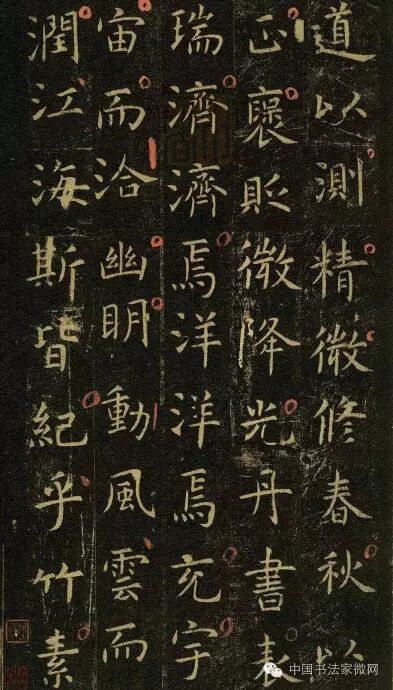 道以測精微修春秋以
正褒貶微降光丹書表
瑞濟濟焉洋洋焉充宇
宙而洽幽明動風雲而
潤江海斯皆紀乎竹素
中国书法家微网